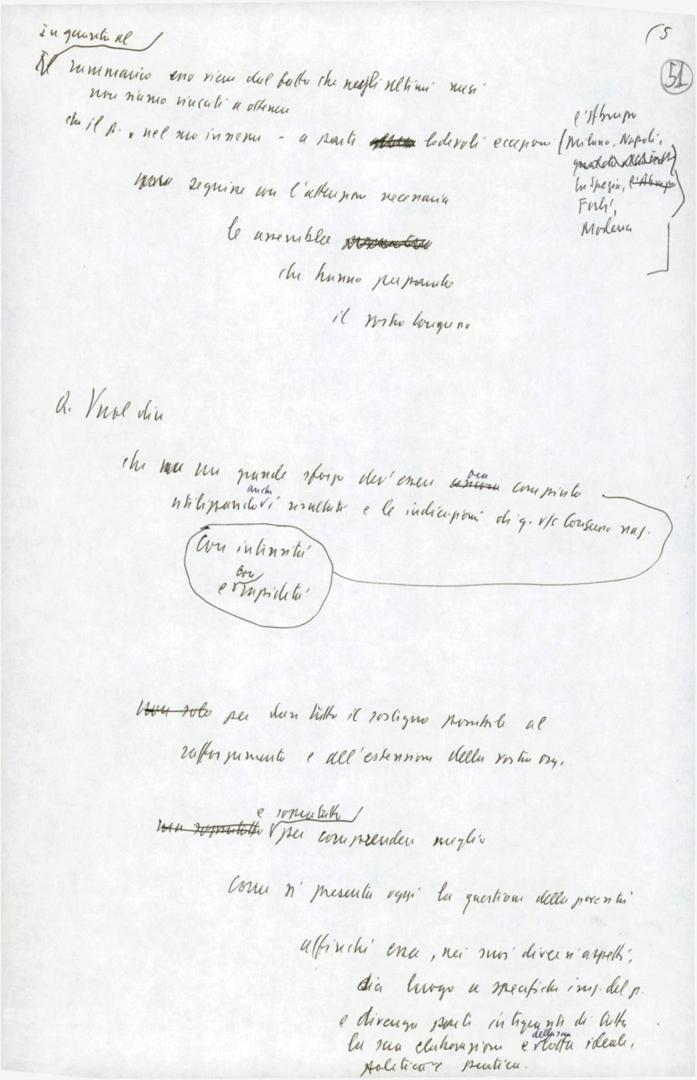 in quanto al
15
51
Il rammarico
viene dal fatto che negli ultimi mesi
non siamo riusciti a ottenere
che il p., nel suo insieme - a parte lodevoli eccezioni (Milano, Napoli,
l'Abruzzo
La Spezia, l'Abruzzo
Forlì,
Modena
seguisse con l'attenzione necessaria
le assemblee
che hanno preparato
il vostro Congresso
Q. Vuol dire
che un grande sforzo dev'essere ora compiuto
utilizzando anche i risultati e le indicazioni di q. vs Congresso naz.
con intensità
e con rapidità
non solo per dare tutto il sostegno possibile al
rafforzamento e all'estensione della vostra org.
ma soprattutto e soprattutto per comprendere meglio
come si presenta oggi la questione della povertà
affinché essa, nei suoi diversi aspetti,
dia luogo a specifiche iniz. del p.
e divenga parte integrante di tutta
la sua elaborazione e della sua lotta ideale,
politica e pratica.